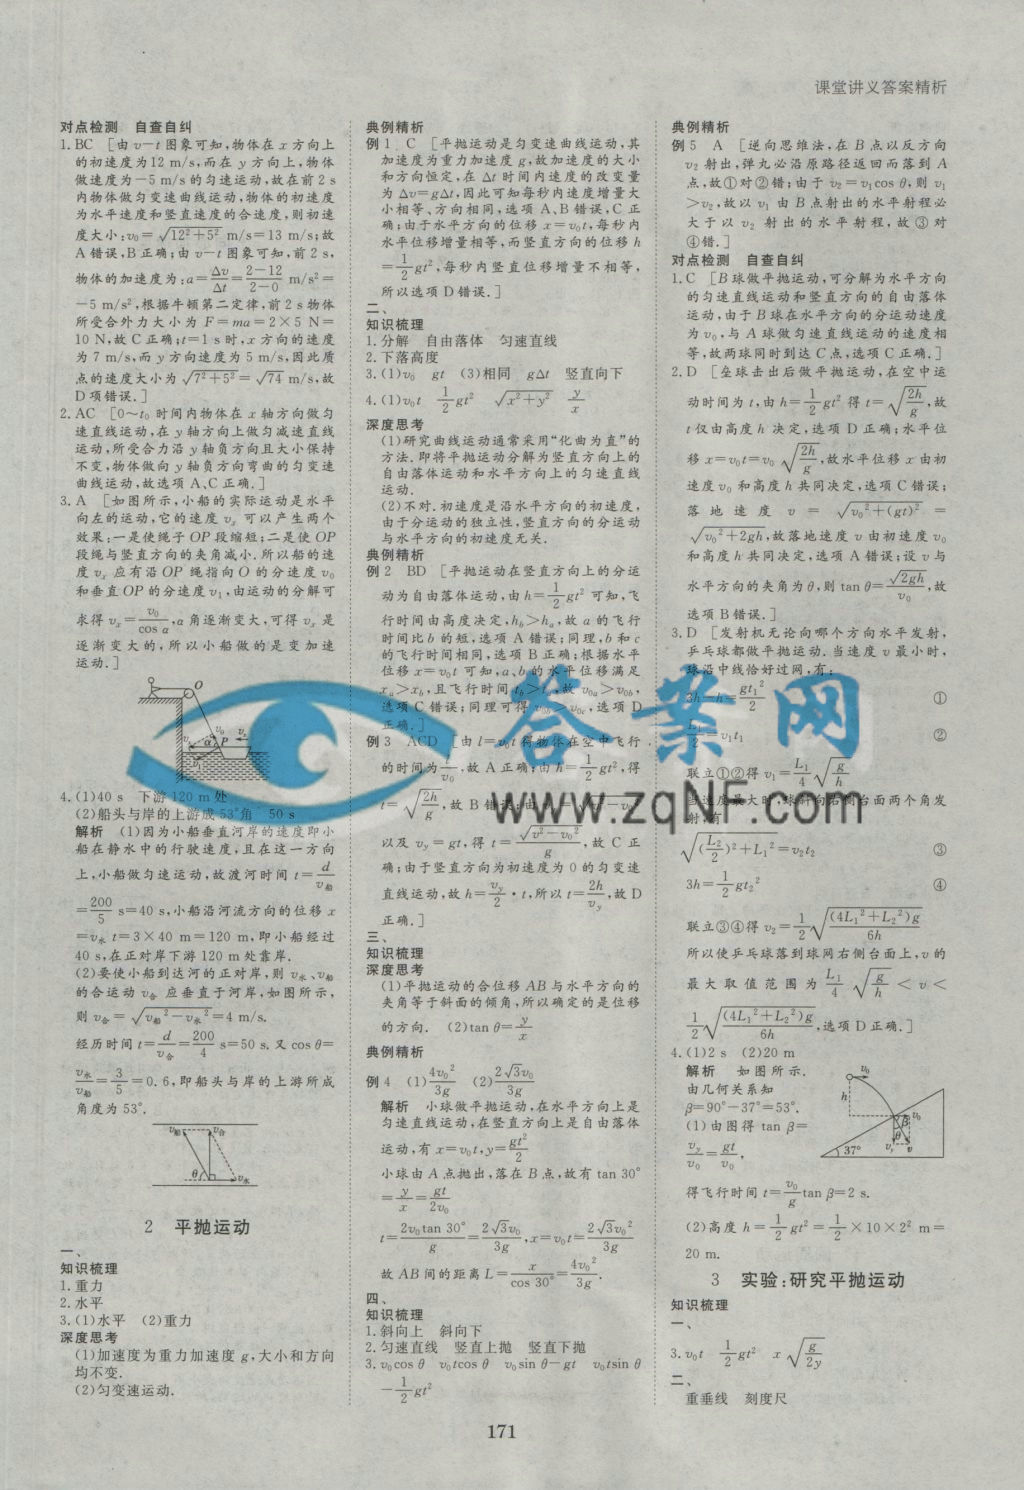 课堂讲义答案精析
对点检测　自查自纠
1.BC　[由 v－t 图象可知,物体在 x 方向上
的初速度为12 m/s,而在 y 方向上,物体
做速度为－5 m/s的匀速运动,故在前2 s
内物体做匀变速曲线运动,物体的初速度
为水平速度和竖直速度的合速度,则初速
度大小:v₀＝√(12²＋5²) m/s＝13 m/s;故
A错误,B正确;由 v－t 图象可知,前2 s,
物体的加速度为:a＝Δv/Δt＝(2－12)/(2－0) m/s²＝
－5 m/s²,根据牛顿第二定律,前2 s物体
所受合外力大小为 F＝ma＝2×5 N＝
10 N,故C正确;t＝1 s时,x方向的速度
为 7 m/s,而 y 方向速度为 5 m/s,因此质
点的速度大小为 √(7²＋5²)＝√74 m/s,故
D项错误.]
2.AC　[0～t₀ 时间内物体在 x 轴方向做匀
速直线运动,在 y 轴方向上做匀减速直线
运动,所受合力沿 y 轴负方向且大小保持
不变,物体做向 y 轴负方向弯曲的匀变速
曲线运动,故选项A、C正确.]
3.A　[如图所示,小船的实际运动是水平
向左的运动,它的速度 vₓ 可以产生两个
效果:一是使绳子OP段缩短;二是使OP
段绳与竖直方向的夹角减小.所以船的速
度 vₓ 应有沿OP绳指向O的分速度 v₀
和垂直OP的分速度 v₁,由运动的分解可
求得 vₓ＝v₀/cos α,α角逐渐变大,可得 vₓ 是
逐渐变大的,所以小船做的是变加速
运动.]
O
P
α
4.(1)40 s　下游120 m处
(2)船头与岸的上游成53°角　50 s
解析　(1)因为小船垂直河岸的速度即小
船在静水中的行驶速度,且在这一方向
上,小船做匀速运动,故渡河时间 t＝d/v船
＝200/5 s＝40 s,小船沿河流方向的位移 x
＝v水 t＝3×40 m＝120 m,即小船经过
40 s,在正对岸下游120 m处靠岸.
(2)要使小船到达河的正对岸,则 v水、v船
的合运动 v合 应垂直于河岸,如图所示,
则 v合＝√(v船²－v水²)＝4 m/s.
经历时间 t＝d/v合＝200/4 s＝50 s.又 cos θ＝
v水/v船＝3/5＝0.6,即船头与岸的上游所成
角度为53°.
v船　v合
θ　v水
2　平抛运动
一、
知识梳理
1.重力
2.水平
3.(1)水平　(2)重力
深度思考
(1)加速度为重力加速度 g,大小和方向
均不变.
(2)匀变速运动.
典例精析
例1　C　[平抛运动是匀变速曲线运动,其
加速度为重力加速度 g,故加速度的大小
和方向恒定,在 Δt 时间内速度的改变量
为 Δv＝gΔt,因此可知每秒内速度增量大
小相等、方向相同,选项A、B错误,C正
确;由于水平方向的位移 x＝v₀t,每秒内
水平位移增量相等,而竖直方向的位移 h
＝1/2 gt²,每秒内竖直位移增量不相等,
所以选项D错误.]
二、
知识梳理
1.分解　自由落体　匀速直线
2.下落高度
3.(1)v₀　gt　(3)相同　gΔt　竖直向下
4.(1)v₀t　1/2 gt²　√(x²＋y²)　y/x
深度思考
(1)研究曲线运动通常采用“化曲为直”的
方法.即将平抛运动分解为竖直方向上的
自由落体运动和水平方向上的匀速直线
运动.
(2)不对.初速度是沿水平方向的初速度,
由于分运动的独立性,竖直方向的分运动
与水平方向的初速度无关.
典例精析
例2　BD　[平抛运动在竖直方向上的分运
动为自由落体运动,由h＝1/2 gt² 可知,飞
行时间由高度决定,h_b＞h_a,故 a 的飞行
时间比 b 的短,选项A错误;同理,b 和 c
的飞行时间相同,选项B正确;根据水平
位移 x＝v₀t可知,a、b的水平位移满足
x_a＞x_b,且飞行时间 t_b＞t_a,故 v₀a＞v₀b,
选项C错误;同理可得 v₀b＞v₀c,选项D
正确.]
例3　ACD　[由 l＝v₀t 得物体在空中飞行
的时间为 l/v₀,故A正确;由h＝1/2 gt²,得
t＝√(2h/g),故B错误;由 v_y＝√(v²－v₀²)
以及 v_y＝gt,得 t＝√(v²－v₀²)/g,故 C 正
确;由于竖直方向为初速度为0的匀变速
直线运动,故h＝v_y/2·t,所以t＝2h/v_y,故 D
正确.]
三、
知识梳理
深度思考
(1)平抛运动的合位移AB与水平方向的
夹角等于斜面的倾角,所以确定的是位移
的方向.　(2)tan θ＝y/x
典例精析
例4　(1)4v₀²/3g　(2)2√3v₀/3g
解析　小球做平抛运动,在水平方向上是
匀速直线运动,在竖直方向上是自由落体
运动,有 x＝v₀t,y＝gt²/2
小球由A点抛出,落在B点,故有tan 30°
＝y/x＝gt/2v₀
t＝2v₀tan 30°/g＝2√3v₀/3g,x＝v₀t＝2√3v₀²/3g
故 AB 间的距离 L＝x/cos 30°＝4v₀²/3g.
四、
知识梳理
1.斜向上　斜向下
2.匀速直线　竖直上抛　竖直下抛
3.v₀cos θ　v₀tcos θ　v₀sin θ－gt　v₀tsin θ
－1/2 gt²
典例精析
例5　A　[逆向思维法,在B点以反方向
v₂ 射出,弹丸必沿原路径返回而落到A
点,故①对②错;由于 v₂＝v₁cos θ,则 v₁
＞v₂,故以 v₁ 由B点射出的水平射程必
大于以 v₂ 射出的水平射程,故③对
④错.]
对点检测　自查自纠
1.C　[B球做平抛运动,可分解为水平方向
的匀速直线运动和竖直方向的自由落体
运动,由于B球在水平方向的分运动速度
为 v₀,与A球做匀速直线运动的速度相
等,故两球同时到达C点,选项C正确.]
2.D　[垒球击出后做平抛运动,在空中运
动时间为 t,由 h＝1/2 gt² 得 t＝√(2h/g),故
t仅由高度 h 决定,选项D正确;水平位
移 x＝v₀t＝v₀√(2h/g),故水平位移 x 由初
速度 v₀ 和高度 h 共同决定,选项C错误;
落地速度 v＝√(v₀²＋(gt)²)＝
√(v₀²＋2gh),故落地速度 v 由初速度 v₀
和高度 h 共同决定,选项A错误;设 v 与
水平方向的夹角为θ,则 tan θ＝√(2gh)/v₀,故
选项B错误.]
3.D　[发射机无论向哪个方向水平发射,
乒乓球都做平抛运动.当速度 v 最小时,
球沿中线恰好过网,有:
3h－h＝gt₁²/2　①
L₁/2＝v₁t₁　②
联立①②得 v₁＝L₁/4 √(g/h)
当速度最大时,球斜向右侧台面两个角发
射,有
√((L₂/2)²＋L₁²)＝v₂t₂　③
3h＝1/2 gt₂²　④
联立③④得 v₂＝1/2 √((4L₁²＋L₂²)g/6h)
所以使乒乓球落到球网右侧台面上,v 的
最大取值范围为 L₁/4 √(g/h)＜v＜
1/2 √((4L₁²＋L₂²)g/6h),选项D正确.]
4.(1)2 s　(2)20 m
解析　如图所示.
由几何关系知
β＝90°－37°＝53°.
(1)由图得 tan β＝
v_y/v₀＝gt/v₀,
得飞行时间 t＝v₀/g tan β＝2 s.
(2)高度 h＝1/2 gt²＝1/2×10×2² m＝
20 m.
v₀
h
β
v₀
θ
37°
v_y　v
3　实验:研究平抛运动
知识梳理
一、
3.v₀t　1/2 gt²　x√(g/2y)
二、
重垂线　刻度尺
171
答案网
www.zqNF.com